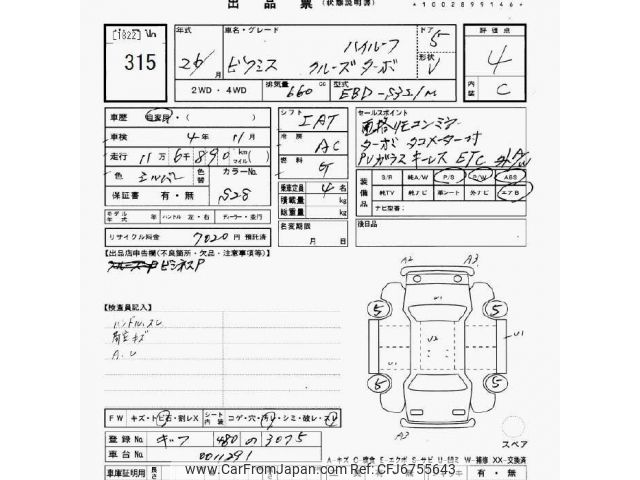 出 品 票 (状態説明書)
*10028991466*
[1822] Vn
315
年式 車名・グレード ドア 評価点
26年 月 ピクシス ハイルーフ クルーズターボ 5 形状 V 4
2WD・4WD 排気量 660 cc 型式 EBD-S321M 内装 C
車歴 自家用・( )
車検 4年 11月
走行 11万 6千 890 km マイル( )
色 シルバー 色替 カラーNo.
保証書 有・無 S28
モデル年式 年 ハンドル 左・右 ディーラー・並行
リサイクル料金 7020 円 預託済
シフト IAT
冷房 AC
燃料 G
乗車定員 4 名
積載量 kg
総重量 kg
名変期限
月 日
セールスポイント
電格リモコンミラー
ターボ タコメーター付
PVガラス キーレス ETC
装備品 S/R 純A/W P/S P/W ABS
純TV 純ナビ 革シート 外ナビ エアB
ナビ型番:
後日品
【出品店申告欄(不良箇所・欠品・注意事項等)】
ビジネスP
【検査員記入】
ハンドルスレ
荷室キズ
A.U
A2 A3
U1
5 5
U1 U2 U1
5 5
A2
スペア
FW キズ・トビ石・割レX シート内装 コゲ・穴・汚レ・シミ・破レ・スレ
登録No ギフ 480 の 3075
車台No 0011291
A-キズ C-腐食 E-エクボ S-サビ U-凹ミ W-補修 XX-交換済
車庫証明用 長さ
有・無
www.CarFromJapan.com Ref:CFJ6755643